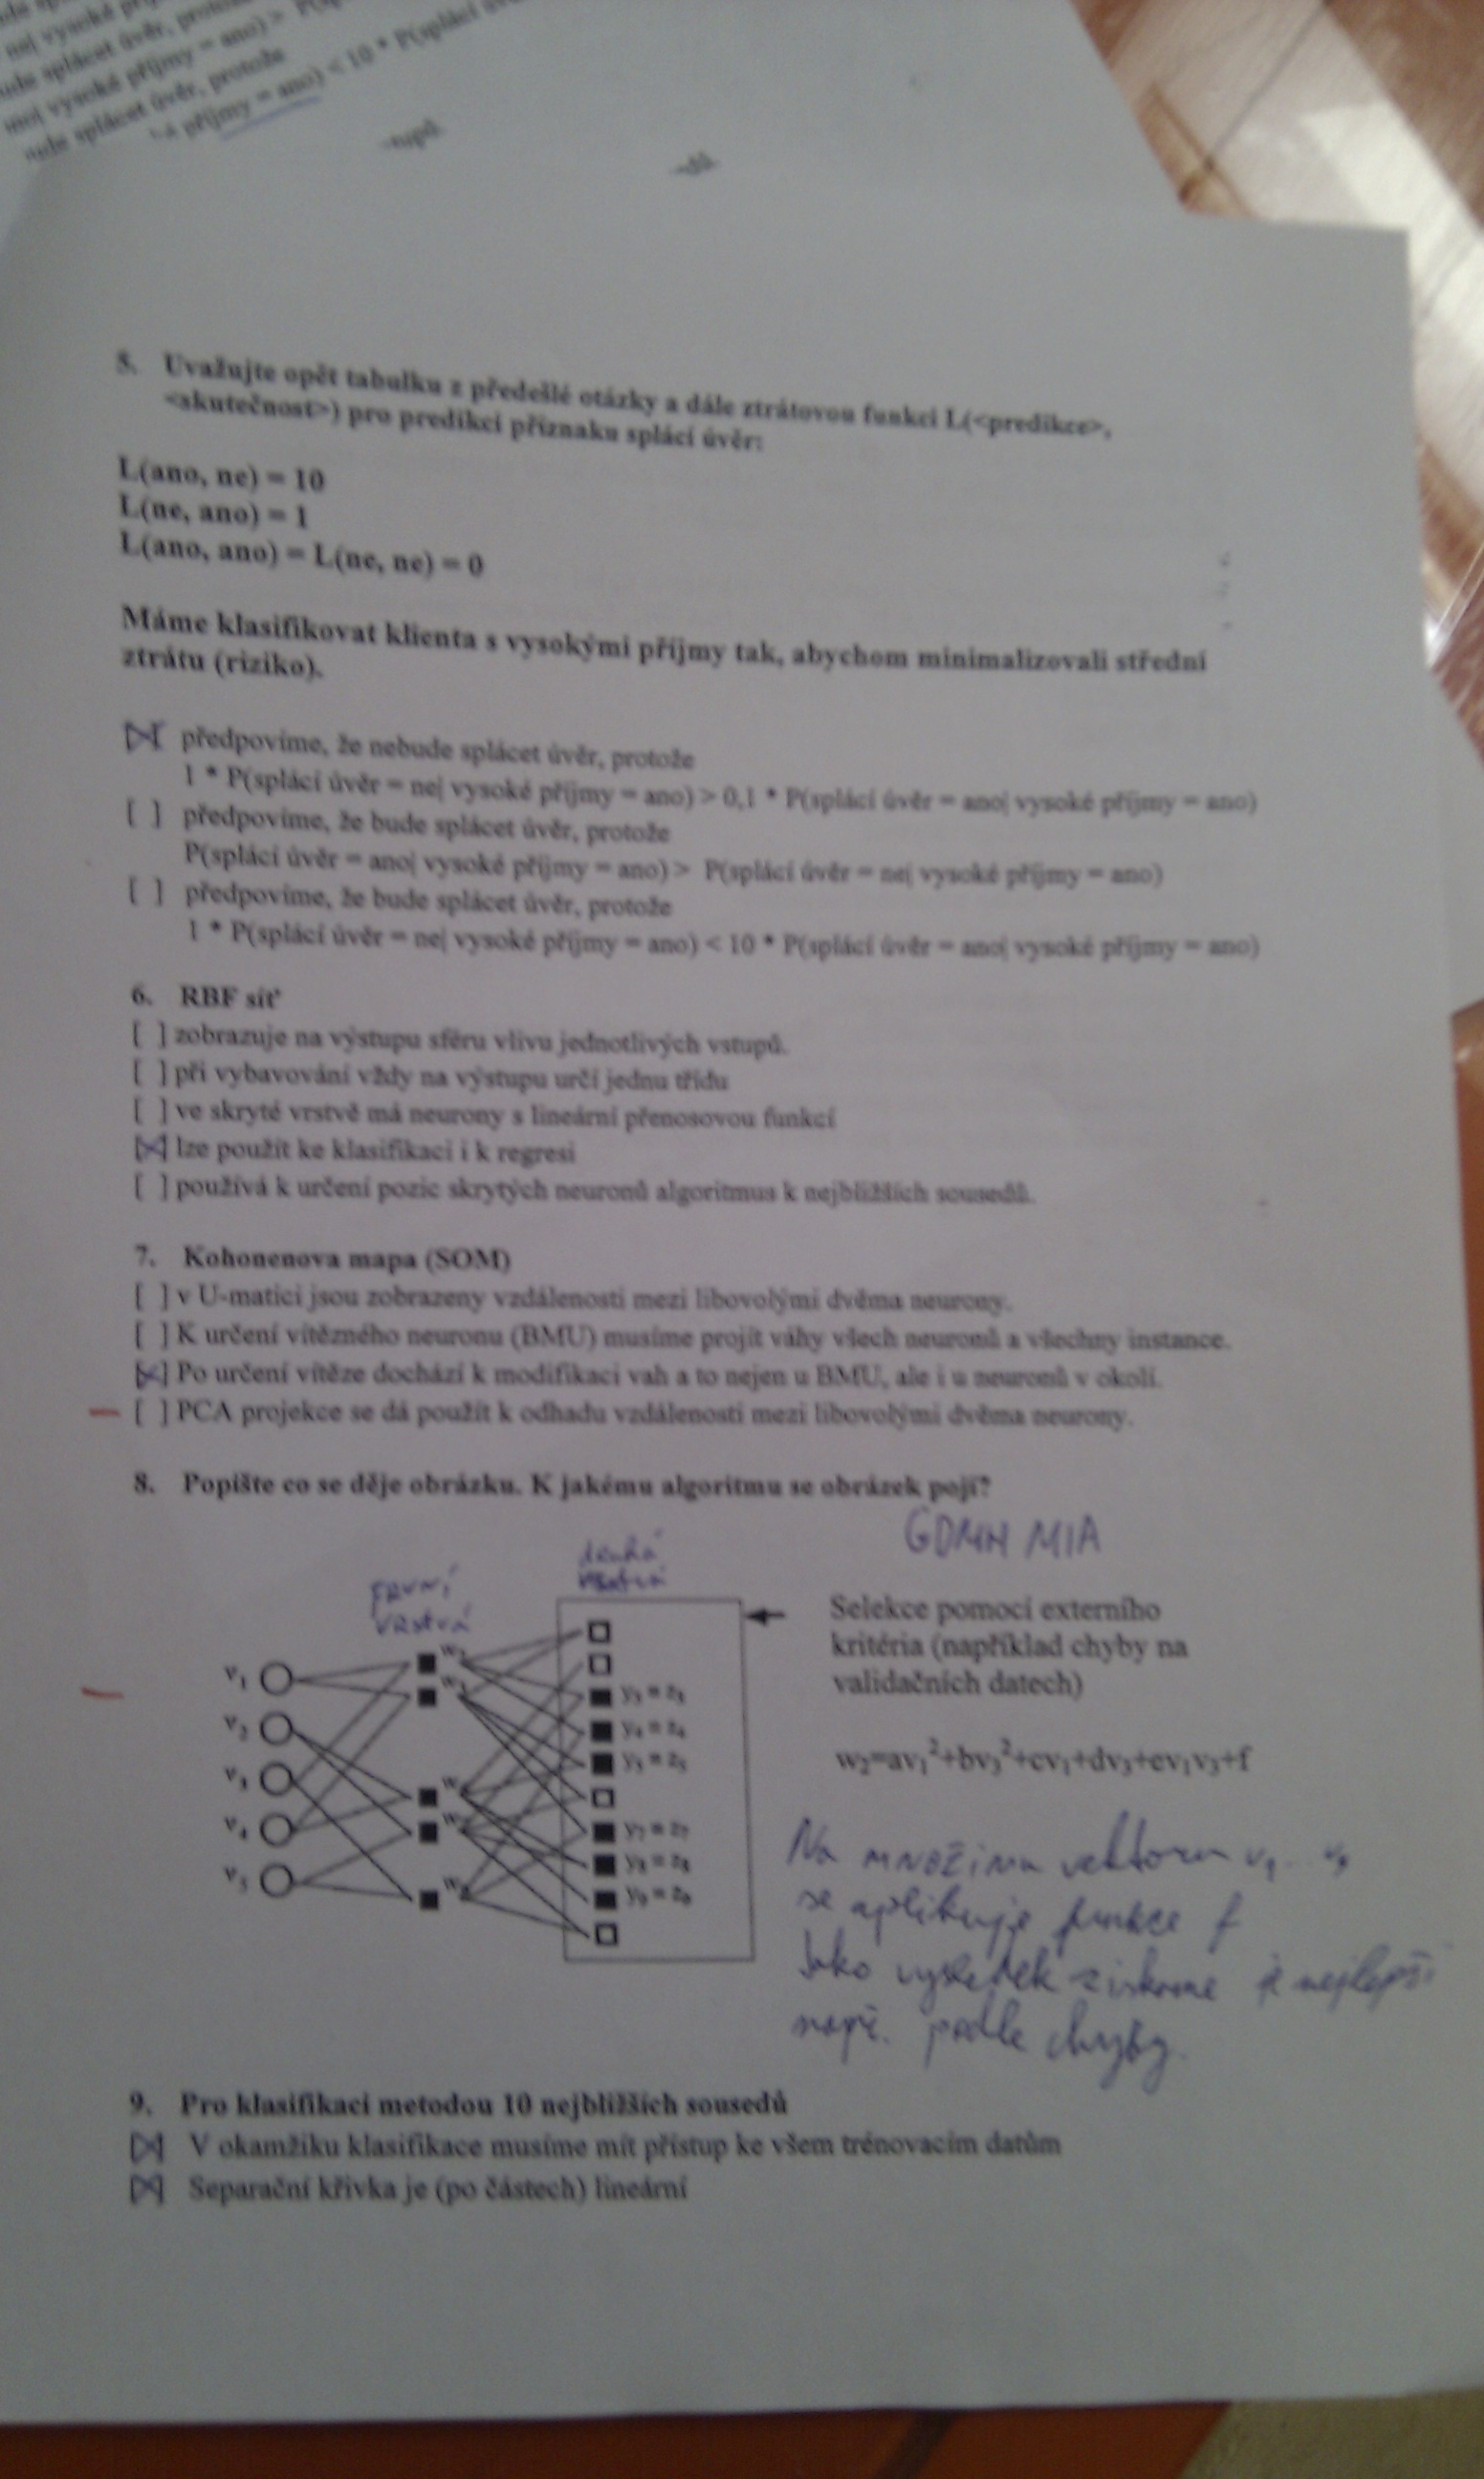 nej vysoké
ude splácet úvěr, protože
moj vysoké příjmy = ano) >
nude splácet úvěr, protože
příjmy = ano) < 10 * P(splácí
5. Uvažujte opět tabulku z předešlé otázky a dále ztrátovou funkci L(<predikce>,
<skutečnost>) pro predikci příznaku splácí úvěr:
L(ano, ne) = 10
L(ne, ano) = 1
L(ano, ano) = L(ne, ne) = 0
Máme klasifikovat klienta s vysokými příjmy tak, abychom minimalizovali střední
ztrátu (riziko).
[X] předpovíme, že nebude splácet úvěr, protože
1 * P(splácí úvěr = ne| vysoké příjmy = ano) > 0,1 * P(splácí úvěr = ano| vysoké příjmy = ano)
[ ] předpovíme, že bude splácet úvěr, protože
P(splácí úvěr = ano| vysoké příjmy = ano) > P(splácí úvěr = ne| vysoké příjmy = ano)
[ ] předpovíme, že bude splácet úvěr, protože
1 * P(splácí úvěr = ne| vysoké příjmy = ano) < 10 * P(splácí úvěr = ano| vysoké příjmy = ano)
6. RBF síť
[ ] zobrazuje na výstupu sféru vlivu jednotlivých vstupů.
[ ] při vybavování vždy na výstupu určí jednu třídu
[ ] ve skryté vrstvě má neurony s lineární přenosovou funkcí
[X] lze použít ke klasifikaci i k regresi
[ ] používá k určení pozic skrytých neuronů algoritmus k nejbližších sousedů.
7. Kohonenova mapa (SOM)
[ ] v U-matici jsou zobrazeny vzdálenosti mezi libovolými dvěma neurony.
[ ] K určení vítězného neuronu (BMU) musíme projít váhy všech neuronů a všechny instance.
[X] Po určení vítěze dochází k modifikaci vah a to nejen u BMU, ale i u neuronů v okolí.
[ ] PCA projekce se dá použít k odhadu vzdálenosti mezi libovolými dvěma neurony.
8. Popište co se děje obrázku. K jakému algoritmu se obrázek pojí?
GDMH MIA
první
vrstva
druhá
vrstva
Selekce pomocí externího
kritéria (například chyby na
validačních datech)
v1
v2
v3
v4
v5
y3 = z3
y4 = z4
y5 = z5
y7 = z7
y8 = z8
y9 = z9
w2=av1²+bv3²+cv1+dv3+ev1v3+f
Na množinu vektoru v1 .. v5
se aplikuje funkce f
Jako výsledek získame je nejlepší
např. podle chyby.
9. Pro klasifikaci metodou 10 nejbližších sousedů
[X] V okamžiku klasifikace musíme mít přístup ke všem trénovacím datům
[X] Separační křivka je (po částech) lineární